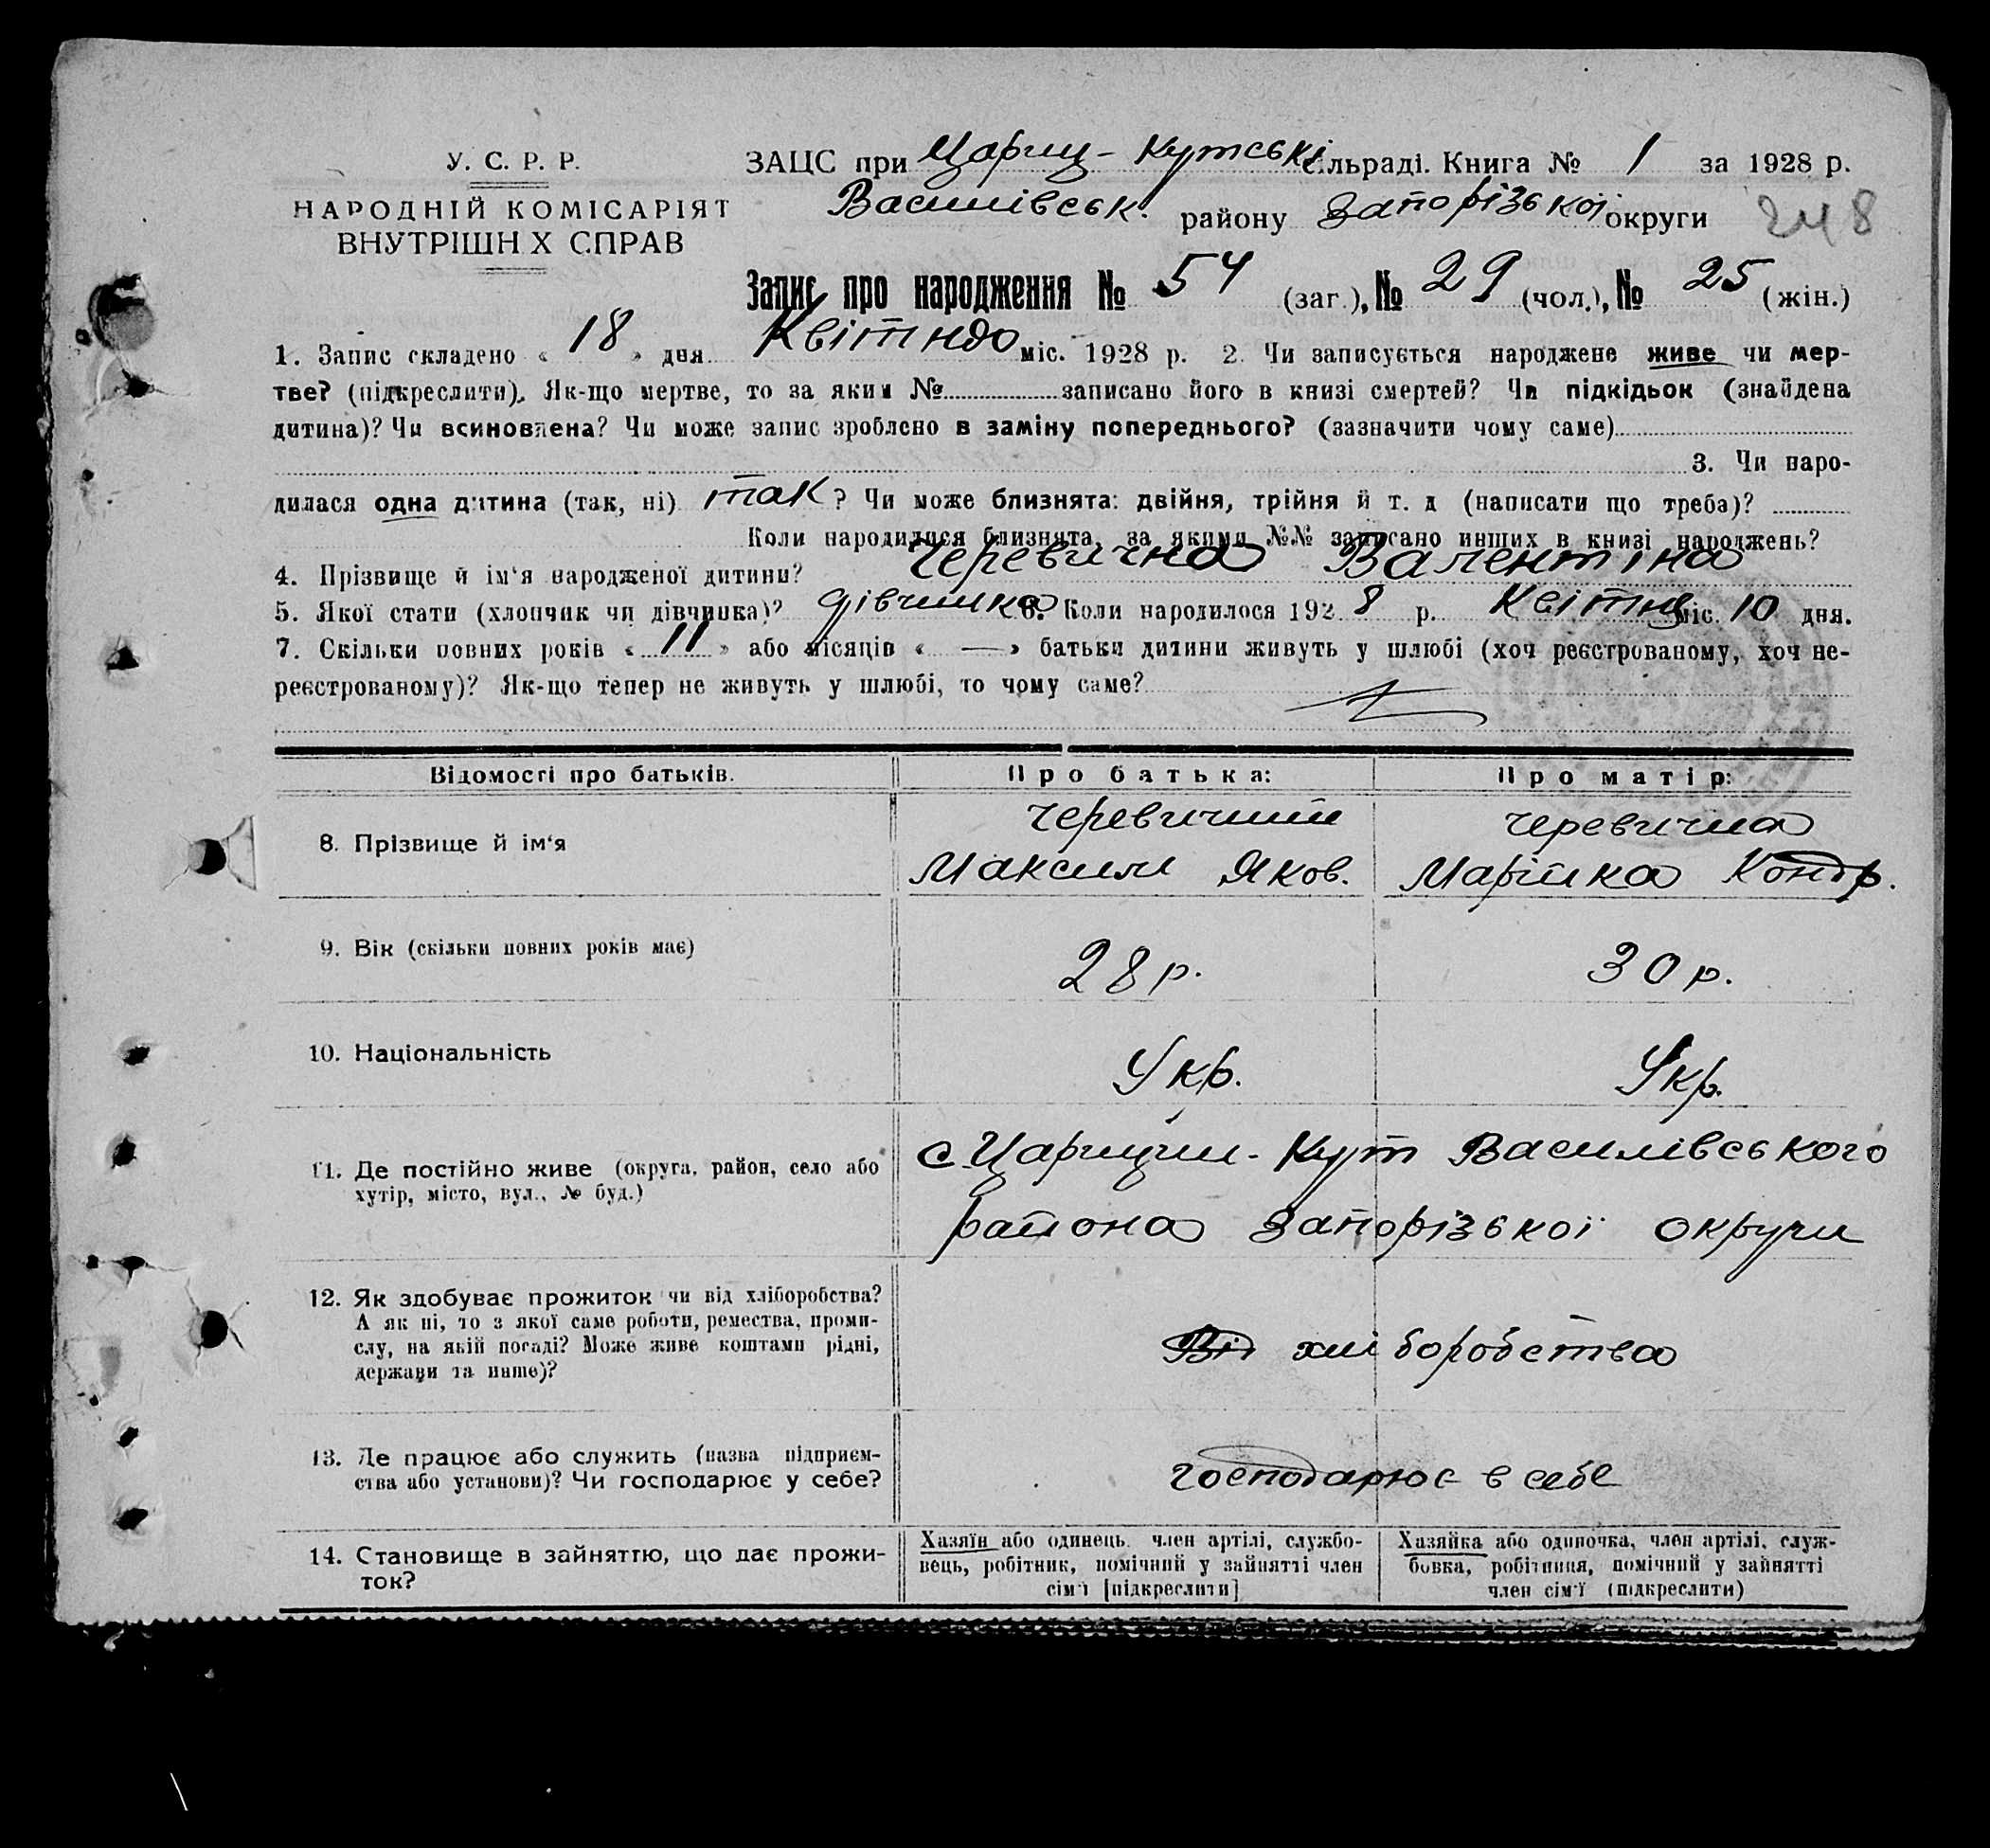 У. С. Р. Р.
НАРОДНІЙ КОМІСАРІЯТ
ВНУТРІШН Х СПРАВ
ЗАЦС при Цариц-Кутські сільраді. Книга № 1 за 1928 р.
Василівськ. району Запорізької округи 248
Запис про народження № 54 (заг.), № 29 (чол.), № 25 (жін.)
1. Запис складено « 18 » дня Квітндо міс. 1928 р. 2. Чи записується народжене живе чи мер-
тве? (підкреслити). Як-що мертве, то за яким № записано його в книзі смертей? Чи підкідьок (знайдена
дитина)? Чи всиновлена? Чи може запис зроблено в заміну попереднього? (зазначити чому саме)
3. Чи наро-
дилася одна дитина (так, ні) так ? Чи може близнята: двійня, трійня й т. д (написати що треба)?
Коли народилися близнята, за якими №№ записано инших в книзі народжень?
4. Прізвище й ім'я народженої дитини? Черевична Валентіна
5. Якої стати (хлопчик чи дівчинка)? дівчинка 6. Коли народилося 192 8 р. Квітня міс. 10 дня.
7. Скільки повних років « 11 » або місяців « — » батьки дитини живуть у шлюбі (хоч реєстрованому, хоч не-
реєстрованому)? Як-що тепер не живуть у шлюбі, то чому саме?
Відомості про батьків. Про батька: Про матір:
8. Прізвище й ім'я
Черевичний Черевична
Максим Яков. Марійка Кондр.
9. Вік (скільки повних років має) 28 р. 30 р.
10. Національність Укр. Укр.
11. Де постійно живе (округа, район, село або
хутір, місто, вул., № буд.)
с. Царицин-Кут Василівського
района Запорізької округи
12. Як здобуває прожиток чи від хліборобства?
А як ні, то з якої саме роботи, ремества, проми-
слу, на якій посаді? Може живе коштами рідні,
держави та инше)?
Від хліборобства
13. Де працює або служить (назва підприєм-
ства або установи)? Чи господарює у себе?
господарює в себе
14. Становище в зайняттю, що дає прожи-
ток?
Хазяїн або одинець, член артілі, службо-
вець, робітник, помічний у зайнятті член
сім'ї [підкреслити]
Хазяйка або одиночка, член артілі, служ-
бовка, робітниця, помічний у зайнятті
член сім'ї (підкреслити)